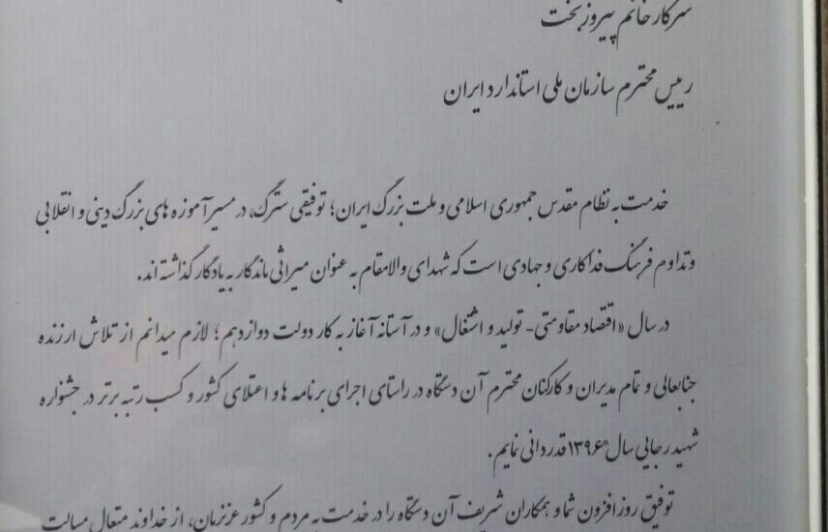 سرکار خانم پیروزبخت
رییس محترم سازمان ملی استاندارد ایران
خدمت به نظام مقدس جمهوری اسلامی و ملت بزرگ ایران؛ توفیقی سترگ، در مسیر آموزه های بزرگ دینی و انقلابی
و تداوم فرهنگ فداکاری و جهادی است که شهدای والامقام به عنوان میراثی ماندگار به یادگار گذاشته اند.
در سال «اقتصاد مقاومتی- تولید و اشتغال» و در آستانه آغاز به کار دولت دوازدهم؛ لازم میدانم از تلاش ارزنده
جنابعالی و تمام مدیران و کارکنان محترم آن دستگاه در راستای اجرای برنامه ها و اعتلای کشور و کسب رتبه برتر در جشنواره
شهید رجایی سال ۱۳۹۶ قدردانی نمایم.
توفیق روز افزون شما و همکاران شریف آن دستگاه را در خدمت به مردم و کشور عزیزمان، از خداوند متعال مسالت